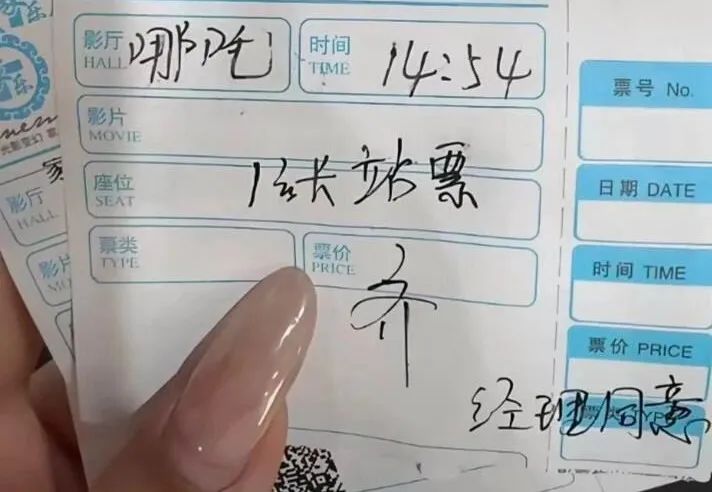 影厅 HALL 哪吒 时间 TIME 14:54
影片 MOVIE
座位 SEAT 1张站票
票类 TYPE 票价 PRICE
齐
经理同意
票号 No.
日期 DATE
时间 TIME
票价 PRICE
影厅
HALL
影片